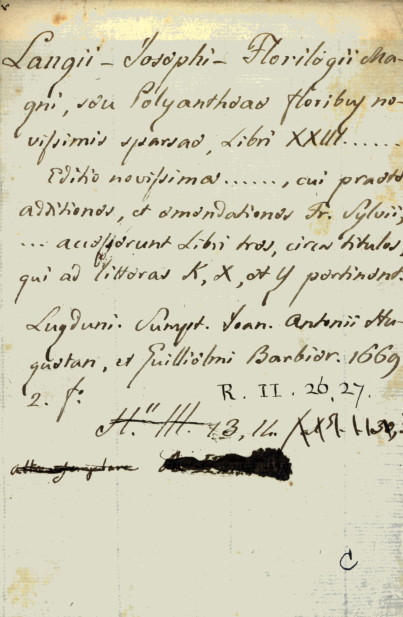 Langii - Josephi - Florilegii Ma-
gni, seu Polyantheae floribus no-
vissimis sparsae, Libri XXIII......
Editio novissima ......, cui praeter
additiones, et emendationes Fr. Sylvii,
... accesserunt Libri tres, circa titulos,
qui ad litteras K, X, et Y pertinent.
Lugduni. Sumpt. Joan. Antonii Hu-
guetan, et Guillielmi Barbier. 1669
2. f.º
R. II. 26, 27.
H." III. 13, 14.
C